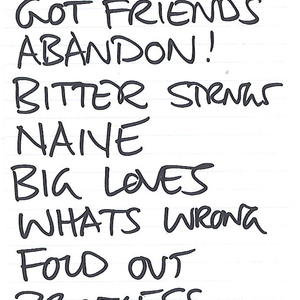 GOT FRIENDS
ABANDON!
BITTER STRNGS
NAIVE
BIG LOVES
WHATS WRONG
FOLD OUT